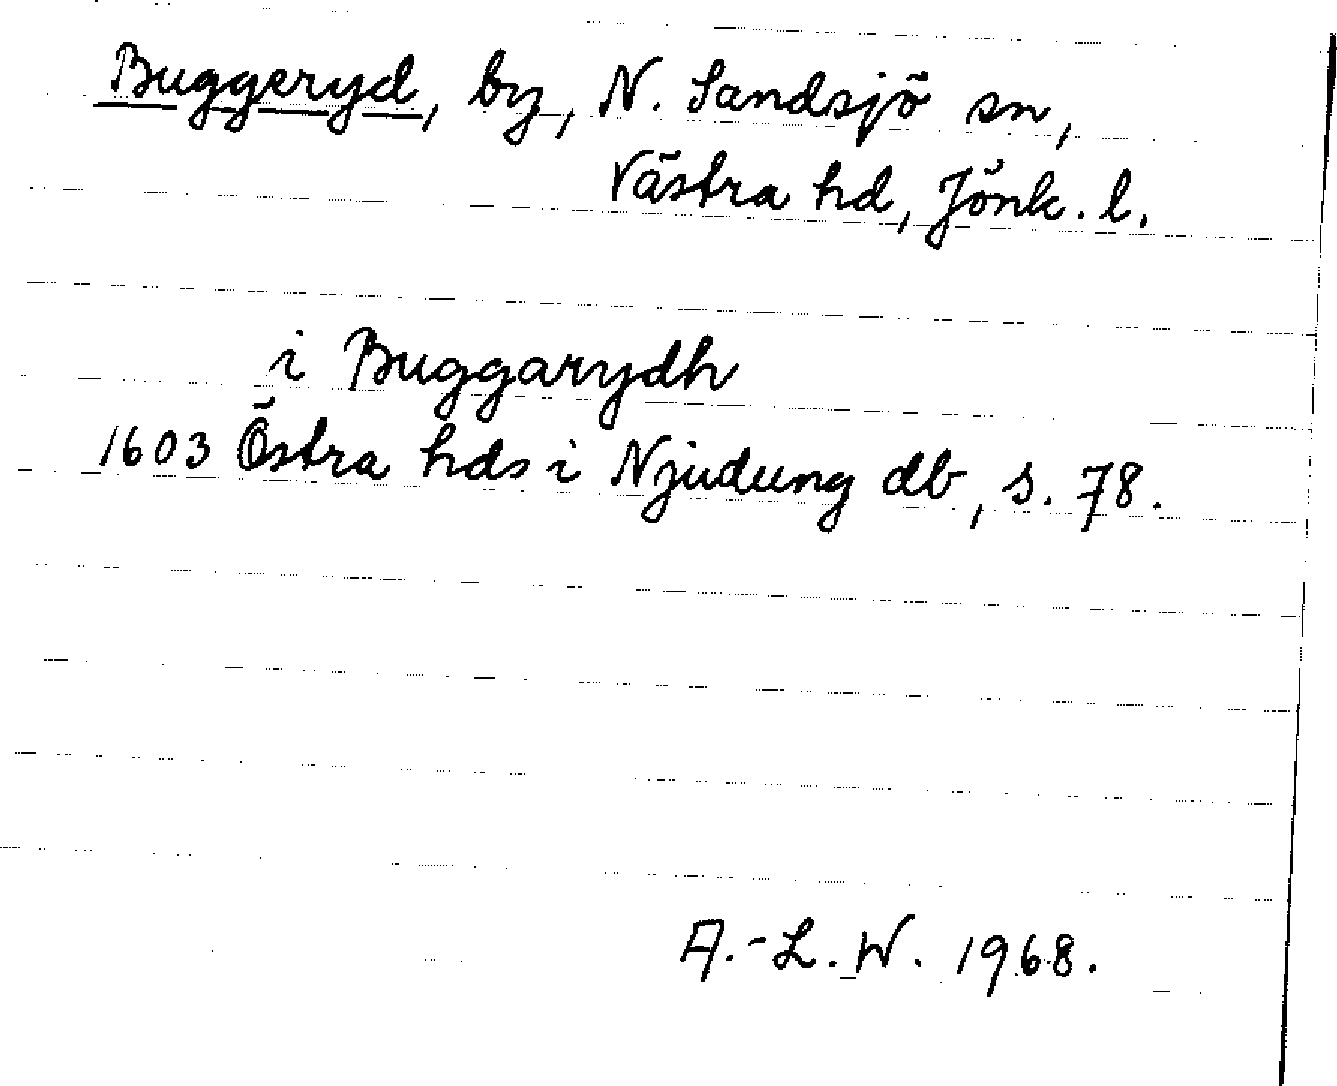 Buggeryd, by, N. Sandsjö sn,
Västra hd, Jönk. l.
i Buggarydh
1603 Östra hds i Njudung db, s. 78.
A.-L. W. 1968.